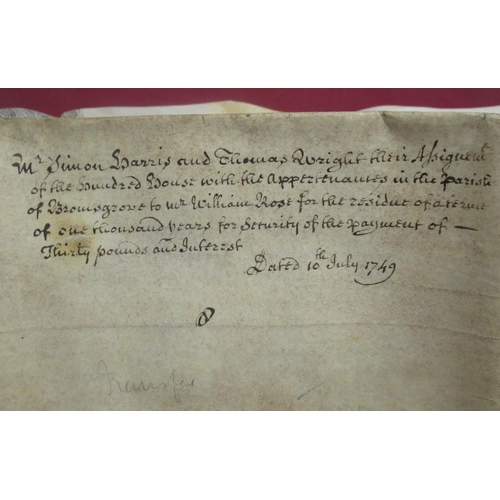 Mr Simon Harris and Thomas Wright their Assignemt
of the Hundred House with the Appertenances in the Parish
of Bromsgrove to Mr William Rose for the residue of a terme
of one thousand years for Security of the Payment of —
Thirty pounds and Interest
Dated 10th July 1749
8
Transfer